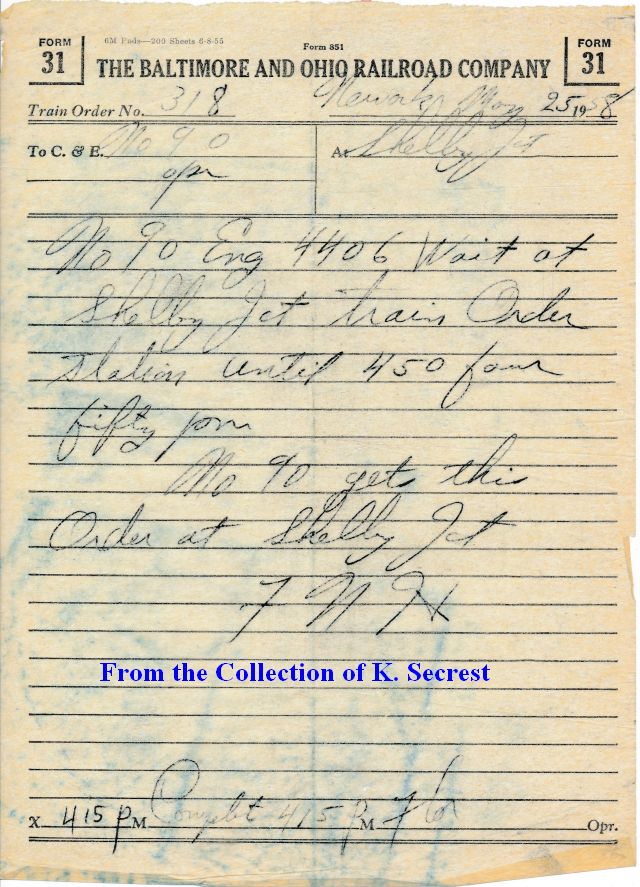 FORM 31
6M Pads—200 Sheets 6-8-55
Form 851
FORM 31
THE BALTIMORE AND OHIO RAILROAD COMPANY
Train Order No. 318 Newark, May 25 1958
To C. & E. No 90 At Shelby Jct
opr
No 90 Eng 4406 Wait at
Shelby Jct train Order
station until 450 four
fifty pm
No 90 gets this
Order at Shelby Jct
F N H
From the Collection of K. Secrest
X 415 P M Complt 415 P M Opr.